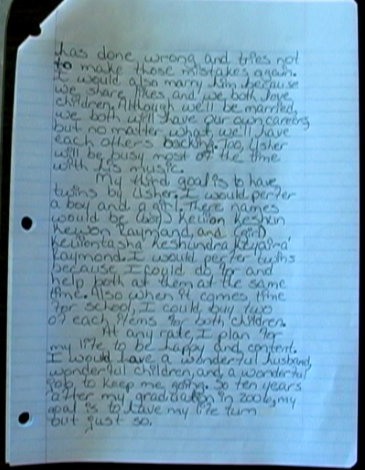 has done wrong and tries not
to make those mistakes again.
I would also marry him because
we share likes and we both love
children. Although we'll be married,
we both will have our own careers,
but no matter what, we'll have
each others backing. Too, Usher
will be busy most of the time
with his music.
My third goal is to have
twins by Usher. I would perfer
a boy and a girl. There names
would be (boy) Kewon Keshun
Kewon Raymond, and (girl)
Kewontasha Keshundra Keyaira
Raymond. I would perfer twins
because I could do for and
help both at them at the same
time. Also when it comes time
for school, I could buy two
of each items for both children.
At any rate, I plan for
my life to be happy and content.
I would have a wonderful husband,
wonderful children, and a wonderful
job, to keep me going. So ten years
after my graduation in 2006, my
goal is to have my life turn
out just so.